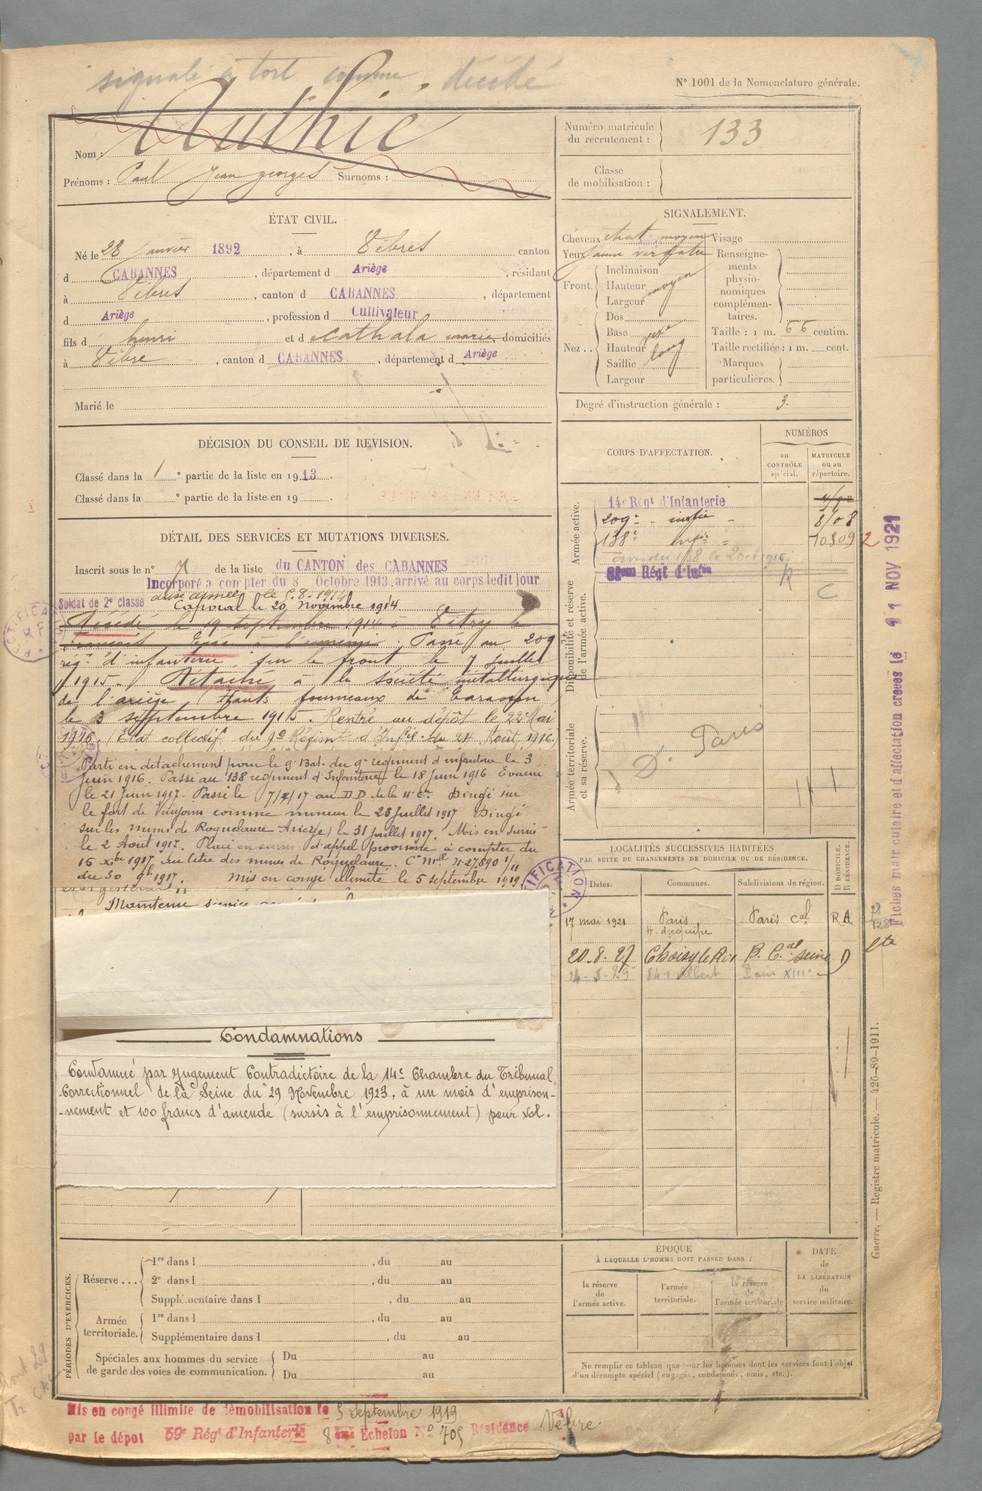 signalé à tort comme décédé
N° 1001 de la Nomenclature générale.
Nom : Authié
Prénoms : Paul Jean georges Surnoms :
Numéro matricule du recrutement : 133
Classe de mobilisation :
ÉTAT CIVIL.
Né le 28 janvier 1892, à Vèbres canton
d CABANNES, département d Ariège, résidant
à Vèbres, canton d CABANNES, département
d Ariège, profession d Cultivateur
fils d henri et d cathala marie, domiciliés
à Vèbre, canton d CABANNES, département d Ariège
Marié le
SIGNALEMENT.
Cheveux chat. moyen Visage
Yeux
Front. Inclinaison
Hauteur moyen
Largeur
Nez.. Dos
Base
Hauteur long
Saillie
Largeur
Renseignements physionomiques complémentaires.
Taille : 1 m. 66 centim.
Taille rectifiée : 1 m. cent.
Marques particulières.
Degré d'instruction générale : 3.
DÉCISION DU CONSEIL DE REVISION.
Classé dans la 1e partie de la liste en 1913
Classé dans la e partie de la liste en 19
DÉTAIL DES SERVICES ET MUTATIONS DIVERSES.
Inscrit sous le n° 7 de la liste du CANTON des CABANNES
Incorporé à compter du 8 Octobre 1913, arrivé au corps ledit jour
Soldat de 2e classe
Caporal le 20 novembre 1914
Décédé le 19 septembre 1914 Vitry le
Passé au 209
rég. d'infanterie, sur le front le 7 juillet
1915. Détaché à la société métallurgique
de l'ariège (Hauts fourneaux de Tarascon
le 3 septembre 1915. Rentré au dépôt le 23 Mai
1916. (Etat collectif du 9e Régiment d'Inf.ie du 24 Août 1916.
Parti en détachement pour le 9e Bat. du 9e régiment d'infanterie le 3
Juin 1916. Passé au 138 régiment d'Infanterie le 18 Juin 1916 Evacué
le 21 Juin 1917. Passé le 7/7/17 au D.D. de la 4e Cie Dirigé sur
le fort de Vaujours comme mineur le 28 Juillet 1917 Dirigé
sur les mines de Roquelaure Ariège) le 31 juillet 1917. Mis en sursis
le 2 Août 1917. Placé en sursis d'appel provisoire à compter du
15 Xbre 1917 au titre des mines de Roquelaure. C. Mlle N° 27890 1/11
du 30 9bre 1917. Mis en congé illimité le 5 septembre 1919
Maintenu service
Condamnations
Condamné par Jugement Contradictoire de la 14e Chambre du Tribunal
Correctionnel de la Seine du 29 Novembre 1923, à un mois d'emprison-
-nement et 100 francs d'amende (sursis à l'emprisonnement) pour vol.
CORPS D'AFFECTATION.
NUMÉROS
au CONTRÔLE spécial.
MATRICULE ou au répertoire.
Armée active.
14e Régt d'Infanterie
209e - inftie - 8108
138e Inftie - 10309
Disponibilité et réserve de l'armée active.
Armée territoriale et sa réserve.
D. Paris
LOCALITÉS SUCCESSIVES HABITÉES
PAR SUITE DE CHANGEMENTS DE DOMICILE OU DE RÉSIDENCE.
Dates. Communes. Subdivisions de région. D DOMICILE. R RÉSIDENCE.
17 mai 1921 Paris Paris Cal R A
20.8.27 Choisy le Roi B. Cal Seine D
Fiches matriculaire et d'affectation creees le 11 NOV 1921
Guerre. — Registre matricule. — 426-89-1911.
PÉRIODES D'EXERCICES.
Réserve... 1re dans l , du au
2e dans l , du au
Supplémentaire dans l , du au
Armée territoriale. 1re dans l , du au
Supplémentaire dans l , du au
Spéciales aux hommes du service de garde des voies de communication. Du au
Du au
ÉPOQUE
À LAQUELLE L'HOMME DOIT PASSER DANS :
la réserve de l'armée active.
l'armée territoriale.
la réserve de l'armée territoriale
DATE DE LA LIBÉRATION du service militaire.
Ne remplir ce tableau que pour les hommes dont les services font l'objet d'un décompte spécial (engagés, condamnés, omis, etc.).
Mis en congé illimité de démobilisation le 5 septembre 1919
par le dépôt 59e Régt d'Infanterie 8ème Echelon N° 705 Résidence Vèbre